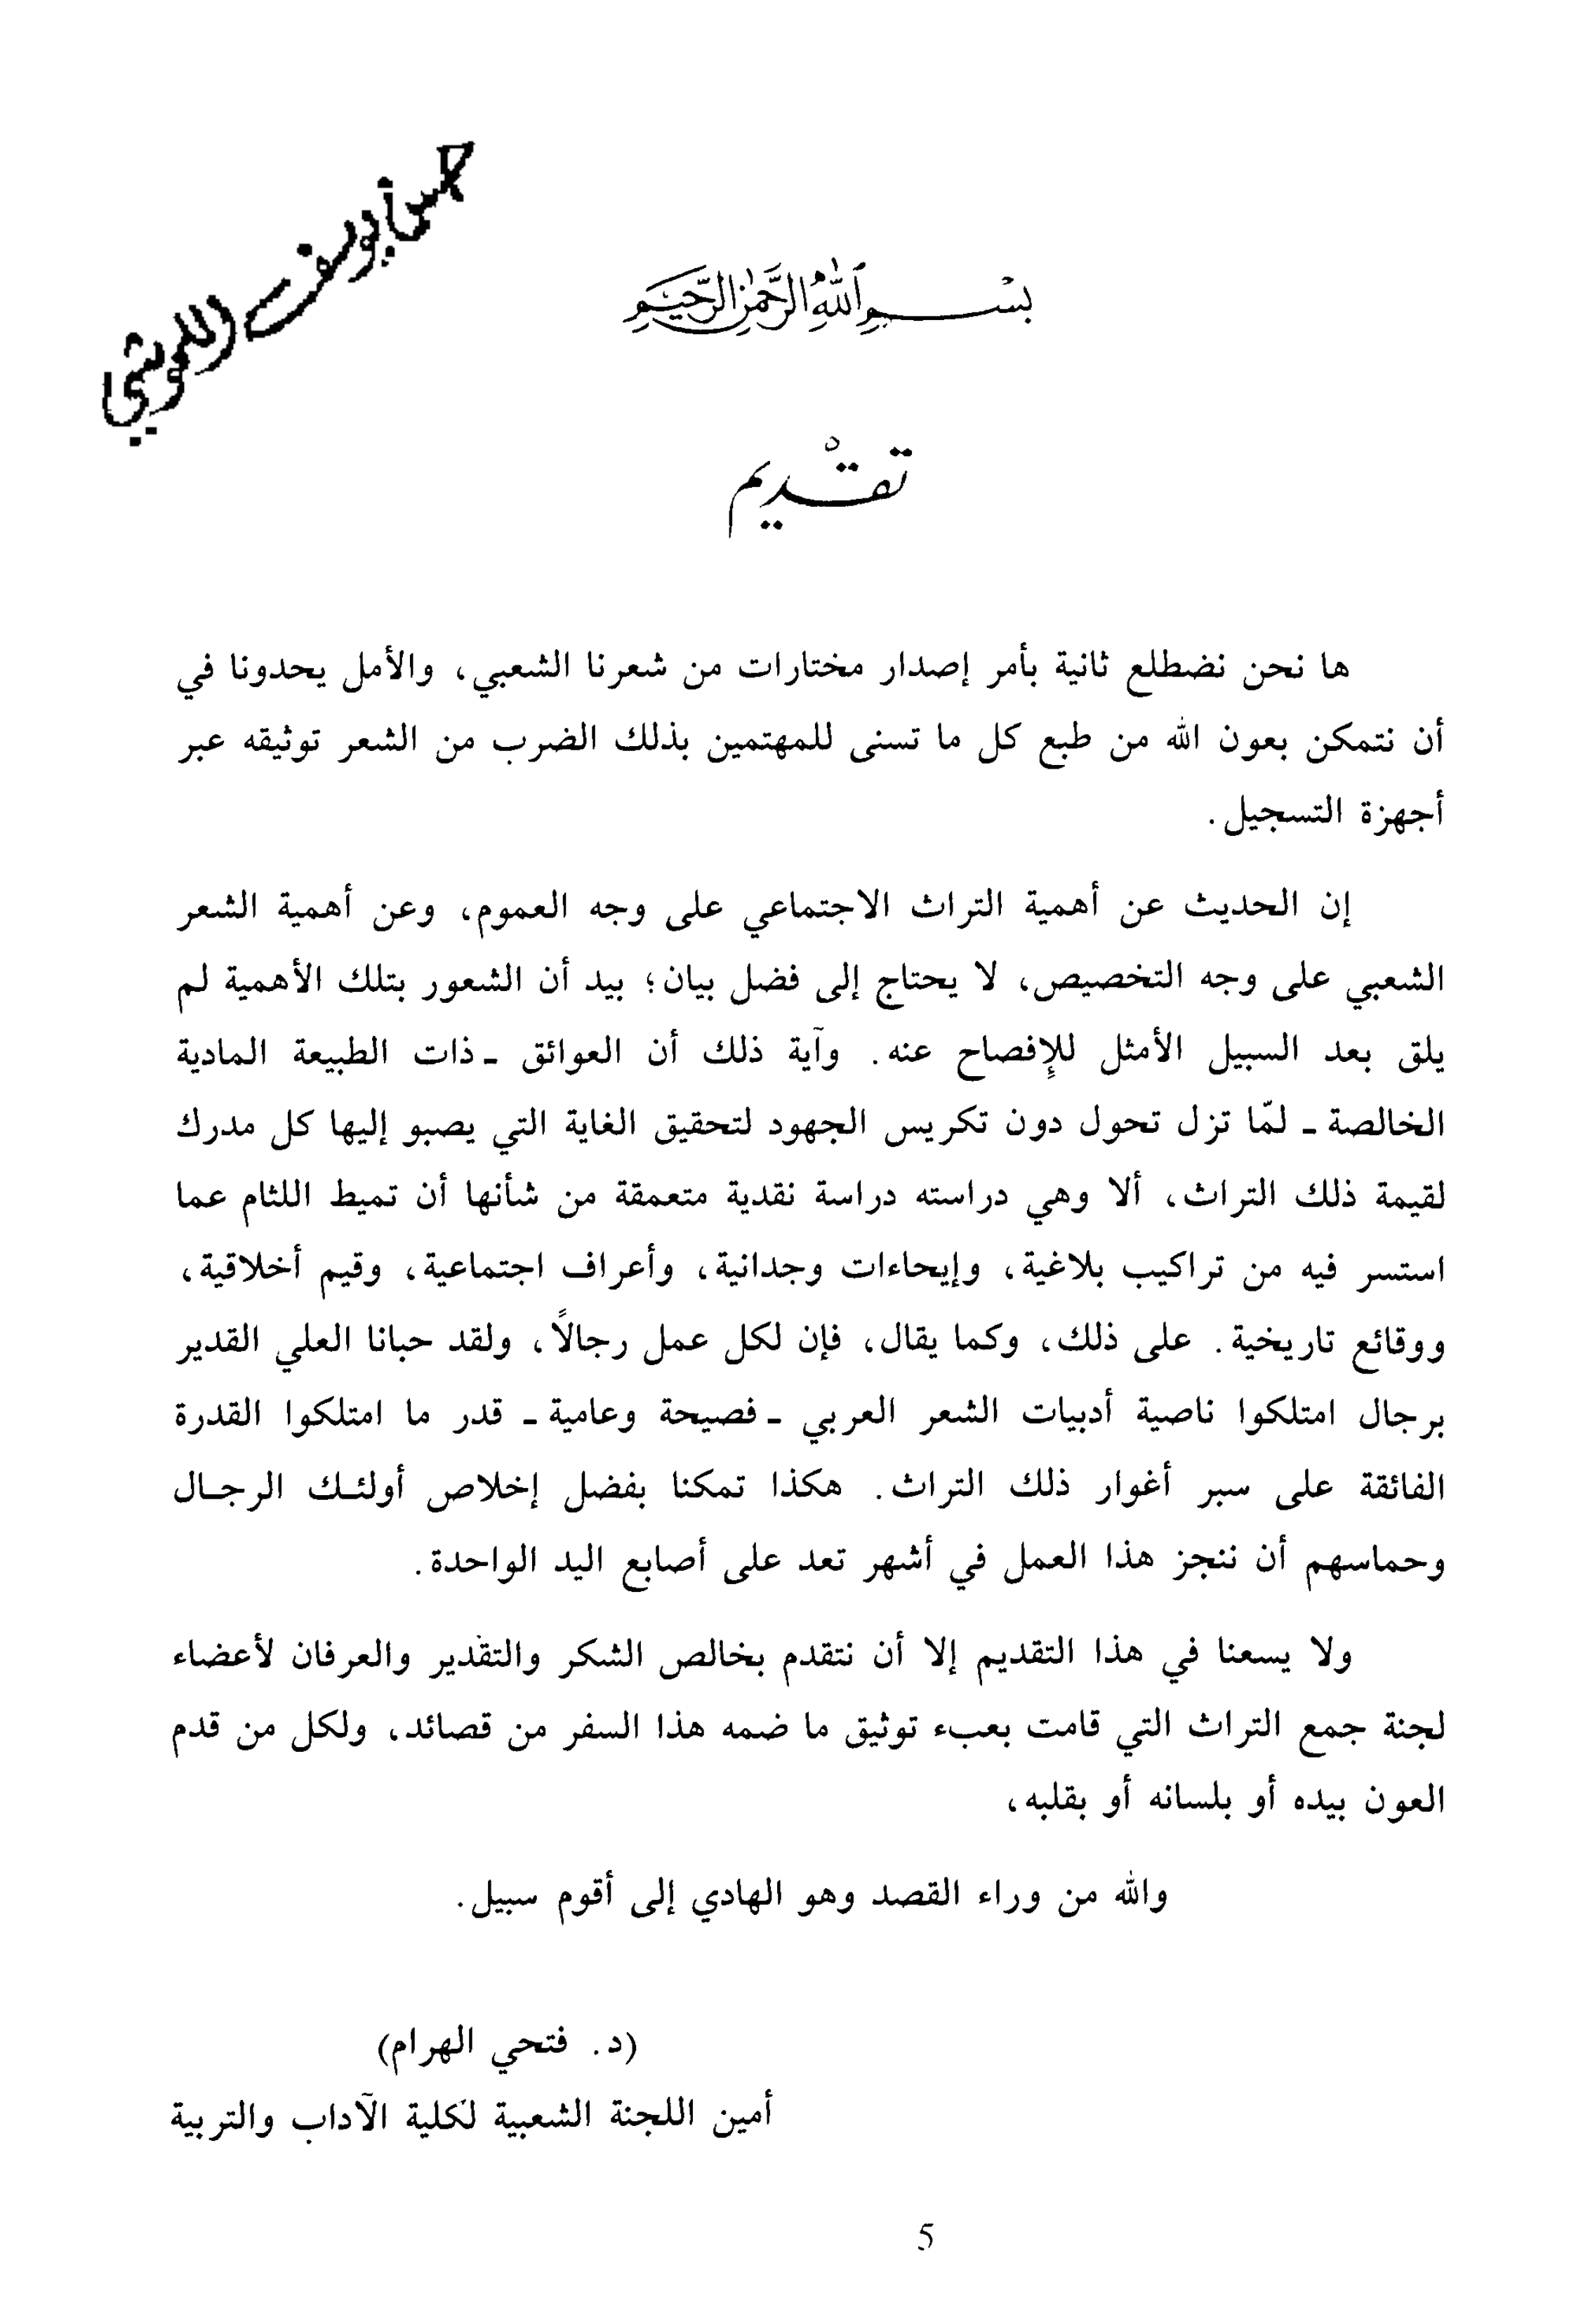 بسم الله الرحمن الرحيم
تقديم
ها نحن نضطلع ثانية بأمر إصدار مختارات من شعرنا الشعبي، والأمل يحدونا في
أن نتمكن بعون الله من طبع كل ما تسنى للمهتمين بذلك الضرب من الشعر توثيقه عبر
أجهزة التسجيل.
إن الحديث عن أهمية التراث الاجتماعي على وجه العموم، وعن أهمية الشعر
الشعبي على وجه التخصيص، لا يحتاج إلى فضل بيان؛ بيد أن الشعور بتلك الأهمية لم
يلق بعد السبيل الأمثل للإفصاح عنه. وآية ذلك أن العوائق ـ ذات الطبيعة المادية
الخالصة ـ لمّا تزل تحول دون تكريس الجهود لتحقيق الغاية التي يصبو إليها كل مدرك
لقيمة ذلك التراث، ألا وهي دراسته دراسة نقدية متعمقة من شأنها أن تميط اللثام عما
استسر فيه من تراكيب بلاغية، وإيحاءات وجدانية، وأعراف اجتماعية، وقيم أخلاقية،
ووقائع تاريخية. على ذلك، وكما يقال، فإن لكل عمل رجالاً، ولقد حبانا العلي القدير
برجال امتلكوا ناصية أدبيات الشعر العربي ـ فصيحة وعامية ـ قدر ما امتلكوا القدرة
الفائقة على سبر أغوار ذلك التراث. هكذا تمكنا بفضل إخلاص أولئـك الرجـال
وحماسهم أن ننجز هذا العمل في أشهر تعد على أصابع اليد الواحدة.
ولا يسعنا في هذا التقديم إلا أن نتقدم بخالص الشكر والتقدير والعرفان لأعضاء
لجنة جمع التراث التي قامت بعبء توثيق ما ضمه هذا السفر من قصائد، ولكل من قدم
العون بيده أو بلسانه أو بقلبه،
والله من وراء القصد وهو الهادي إلى أقوم سبيل.
(د. فتحي الهرام)
أمين اللجنة الشعبية لكلية الآداب والتربية
5